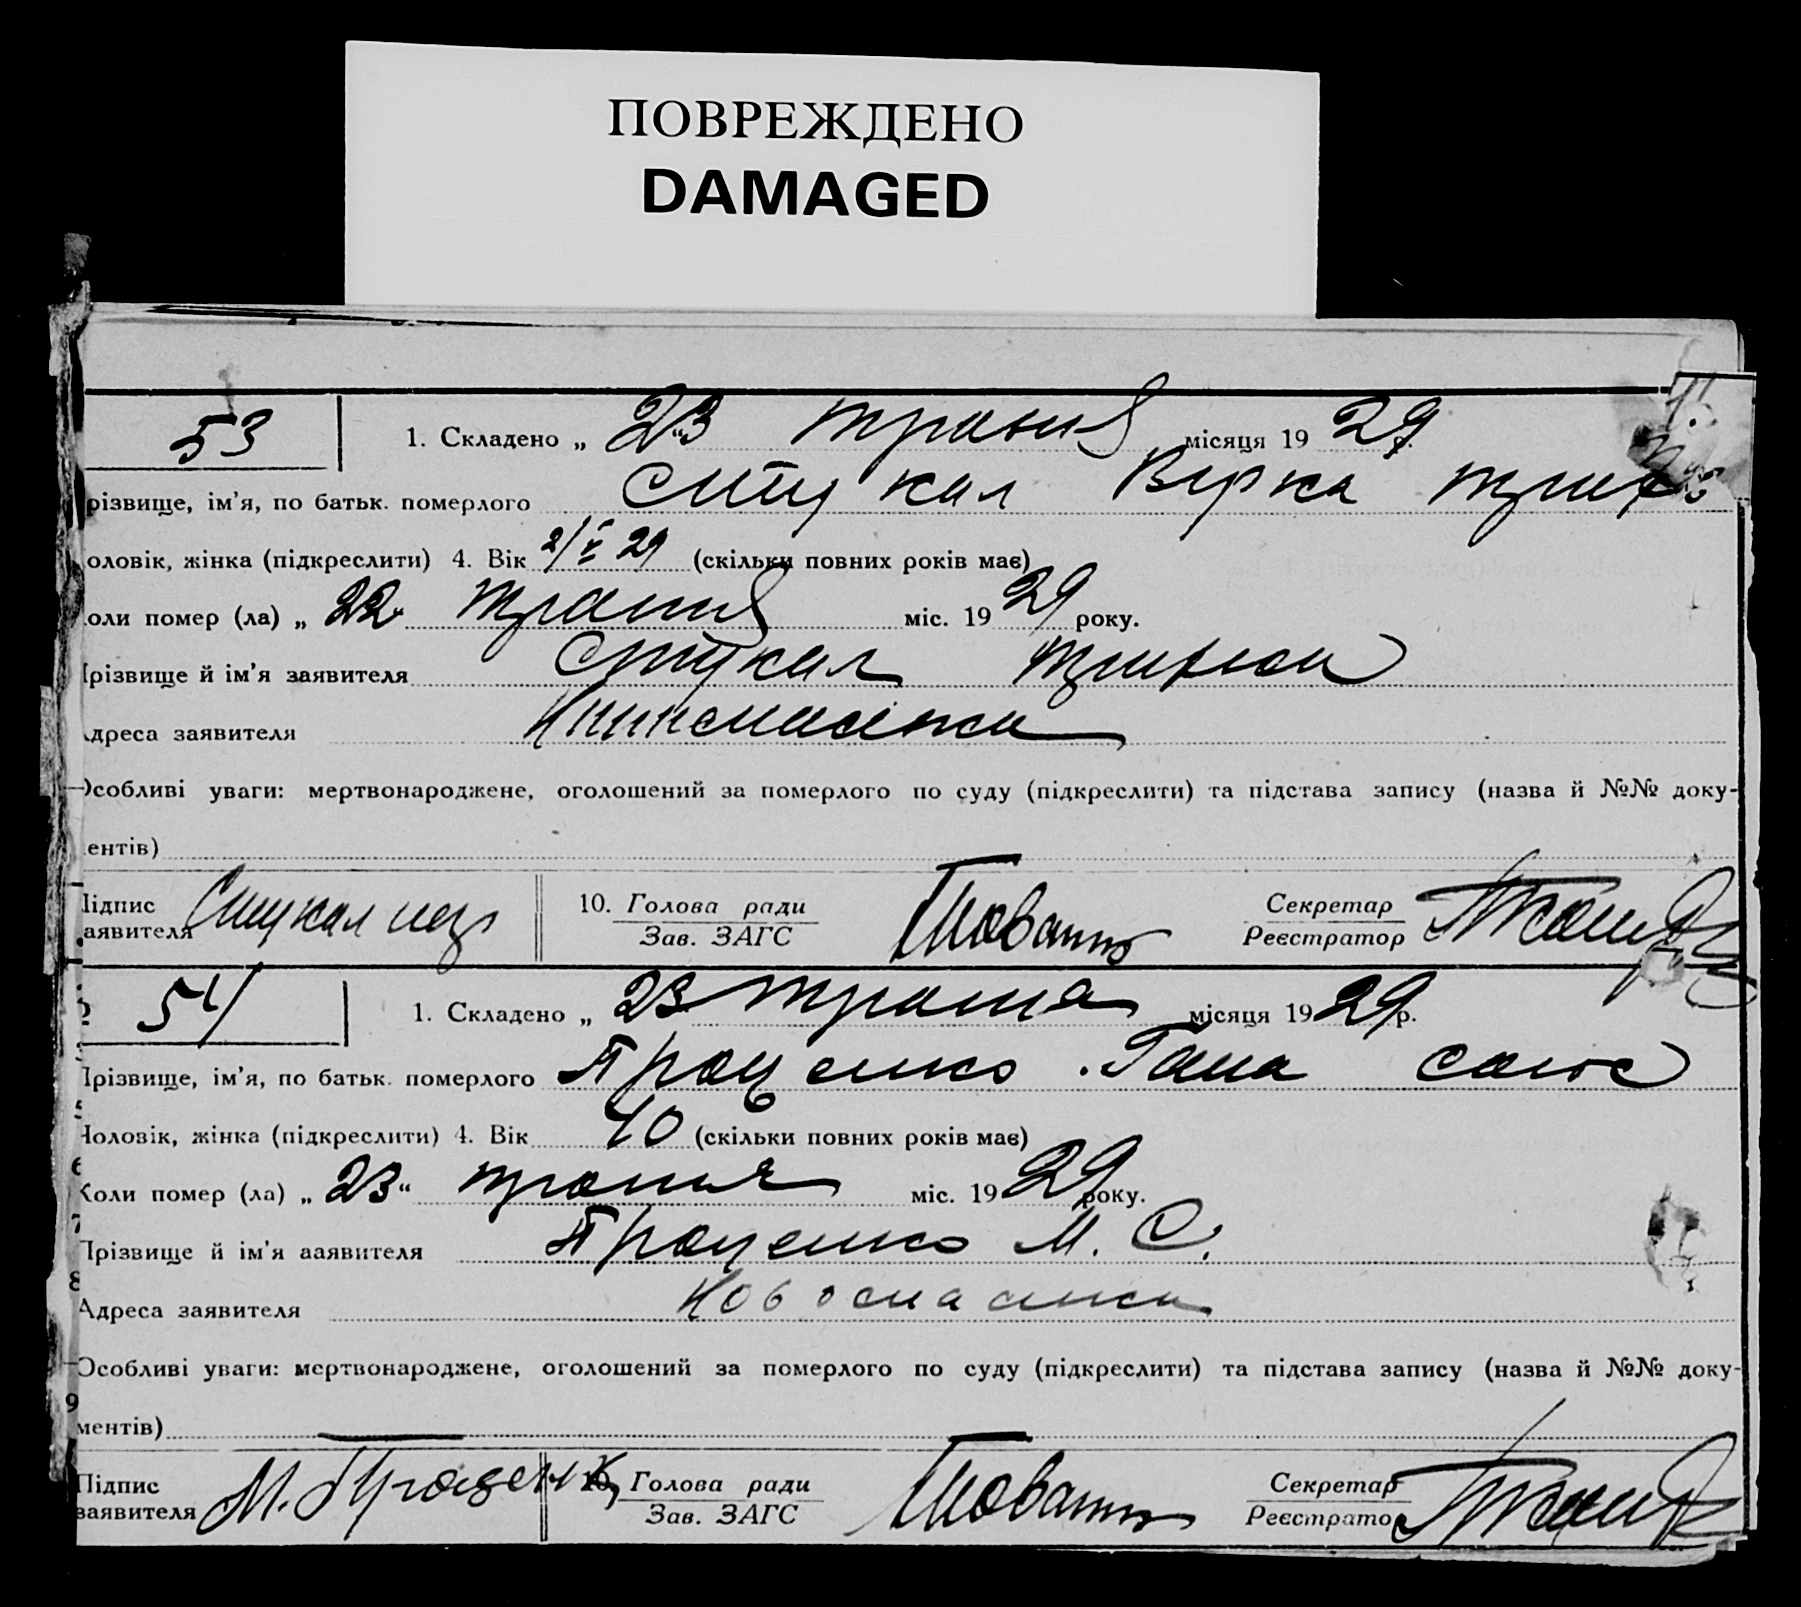 ПОВРЕЖДЕНО
DAMAGED
53
1. Складено „ 23 " травня місяця 19 29 р.
різвище, ім'я, по батьк. померлого Стукал Вірка
оловік, жінка (підкреслити) 4. Вік 2/V 29 (скільки повних років має)
оли помер (ла) „ 22 " травня міс. 19 29 року.
різвище й ім'я заявителя Стукал
дреса заявителя
Особливі уваги: мертвонароджене, оголошений за померлого по суду (підкреслити) та підстава запису (назва й №№ доку-
ентів)
Підпис заявителя Стукал 10. Голова ради Зав. ЗАГС Секретар Реєстратор
54
1. Складено „ 23 травня місяця 19 29 р.
Прізвище, ім'я, по батьк. померлого Проценко Гана
Чоловік, жінка (підкреслити) 4. Вік 40 (скільки повних років має)
6
Коли помер (ла) „ 23 " травня міс. 19 29 року.
7
Прізвище й ім'я ааявителя Проценко М. С.
8
Адреса заявителя Новоспаська
Особливі уваги: мертвонароджене, оголошений за померлого по суду (підкреслити) та підстава запису (назва й №№ доку-
9
ментів)
Підпис заявителя М. Проценко 10. Голова ради Зав. ЗАГС Секретар Реєстрато